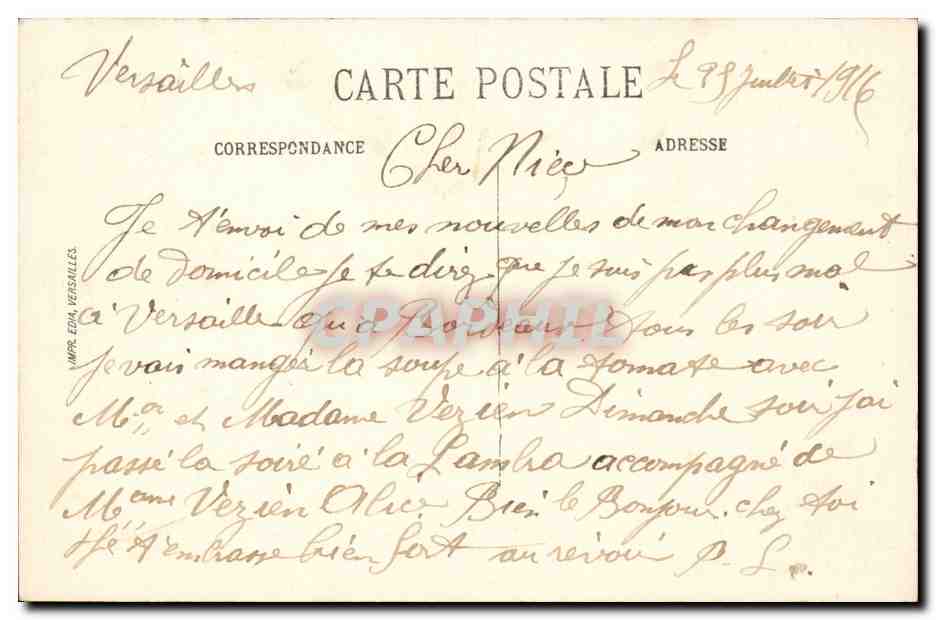 Versailles
CARTE POSTALE
Le 25 Juillet 1916
CORRESPONDANCE
ADRESSE
Cher Nièce
Je t'envoi de mes nouvelles de mon changement
de domicile je te direz que je suis pas plus mal
à Versaille qu'a Bordeaux tous les soir
je vais mangér la soupe à la tomate avec
Mr et Madame Vezien Dimanche soir j'ai
passé la soiré à la accompagné de
Mame Vezién Alice Bién le Bonjour chez toi
Je t'embrasse bién fort au révoir P. L.
IMPR. EDIA, VERSAILLES.
CPAPHIL